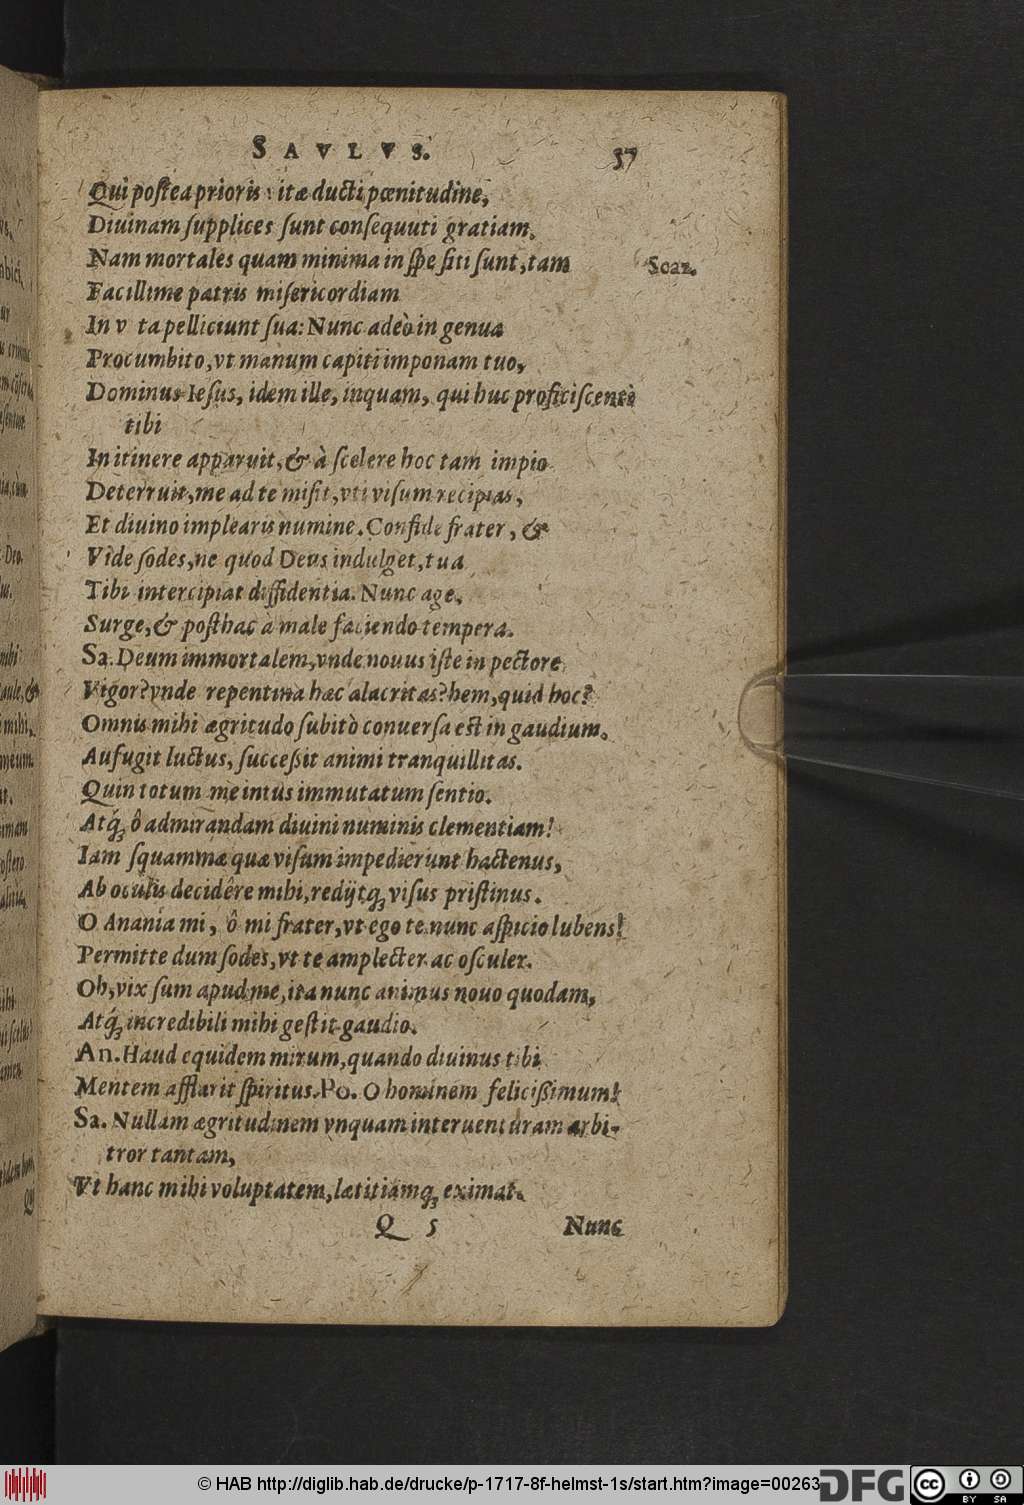 SAVLVS. 37
Qui postea prioris vitæ ducti pœnitudine,
Diuinam supplices sunt consequuti gratiam.
Nam mortales quam minima in spe siti sunt, tam
Scaz.
Facillime patris misericordiam
In v ta pelliciunt sua: Nunc adeò in genua
Procumbito, vt manum capiti imponam tuo,
Dominus Iesus, idem ille, inquam, qui huc proficiscenti
tibi
In itinere apparuit, & à scelere hoc tam impio
Deterruit, me ad te misit, vti visum recipias,
Et diuino implearis numine. Confide frater, &
Vide sodes, ne quod Deus indulget, tua
Tibi intercipiat diffidentia. Nunc age,
Surge, & posthac à male faciendo tempera.
Sa. Deum immortalem, vnde nouus iste in pectore
Vigor? vnde repentina hæc alacritas? hem, quid hoc?
Omnis mihi ægritudo subitò conuersa est in gaudium.
Aufugit luctus, successit animi tranquillitas.
Quin totum me intus immutatum sentio.
Atq́ꝫ ô admirandam diuini numinis clementiam!
Iam squammæ quæ visum impedierunt hactenus,
Ab oculis decidêre mihi, redijtqꝫ visus pristinus.
O Anania mi, ô mi frater, vt ego te nunc aspicio lubens!
Permitte dum sodes, vt te amplecter ac osculer.
Oh, vix sum apud me, ita nunc animus nouo quodam,
Atq́ꝫ incredibili mihi gestit gaudio.
An. Haud equidem mirum, quando diuinus tibi
Mentem afflarit spiritus. Po. O hominem felicissimum!
Sa. Nullam ægritudinem vnquam interuenturam arbi-
tror tantam,
Vt hanc mihi voluptatem, lætitiamqꝫ eximat.
Q 5 Nunc
© HAB http://diglib.hab.de/drucke/p-1717-8f-helmst-1s/start.htm?image=00263
DFG
cc BY SA